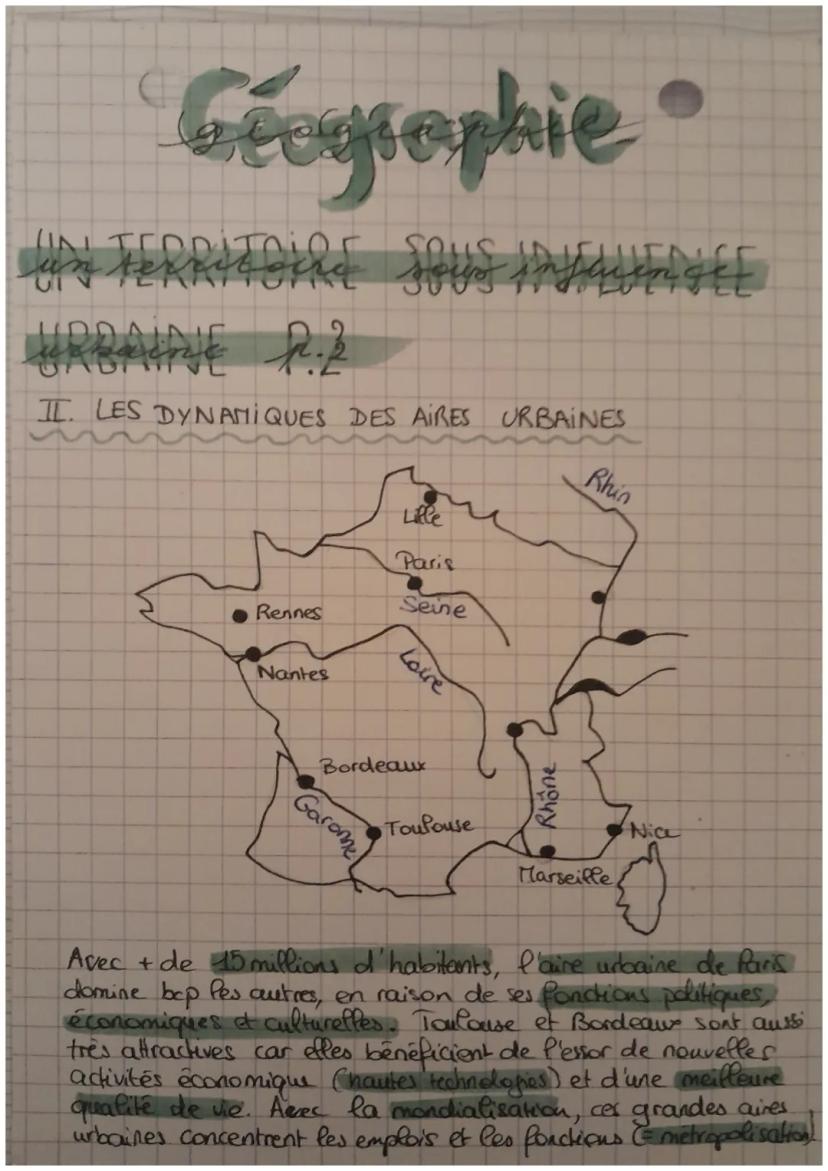 Géographie
géographie
UN TERRITOIRE SOUS INFLUENCE
un territoire sous influence
URBAINE P.2
urbaine
II. LES DYNAMIQUES DES AIRES URBAINES
Rhin
Lille
Paris
Seine
Rennes
Loire
Nantes
Bordeaux
Rhône
Garonne
Toulouse
Nice
Marseille
Avec + de 15 millions d'habitants, l'aire urbaine de Paris
domine bcp les autres, en raison de ses fonctions politiques,
économiques et culturelles. Toulouse et Bordeaux sont aussi
très attractives car elles bénéficient de l'essor de nouvelles
activités économique (hautes technologies) et d'une meilleure
qualité de vie. Avec la mondialisation, ces grandes aires
urbaines concentrent les emplois et les fonctions (= métropolisation)